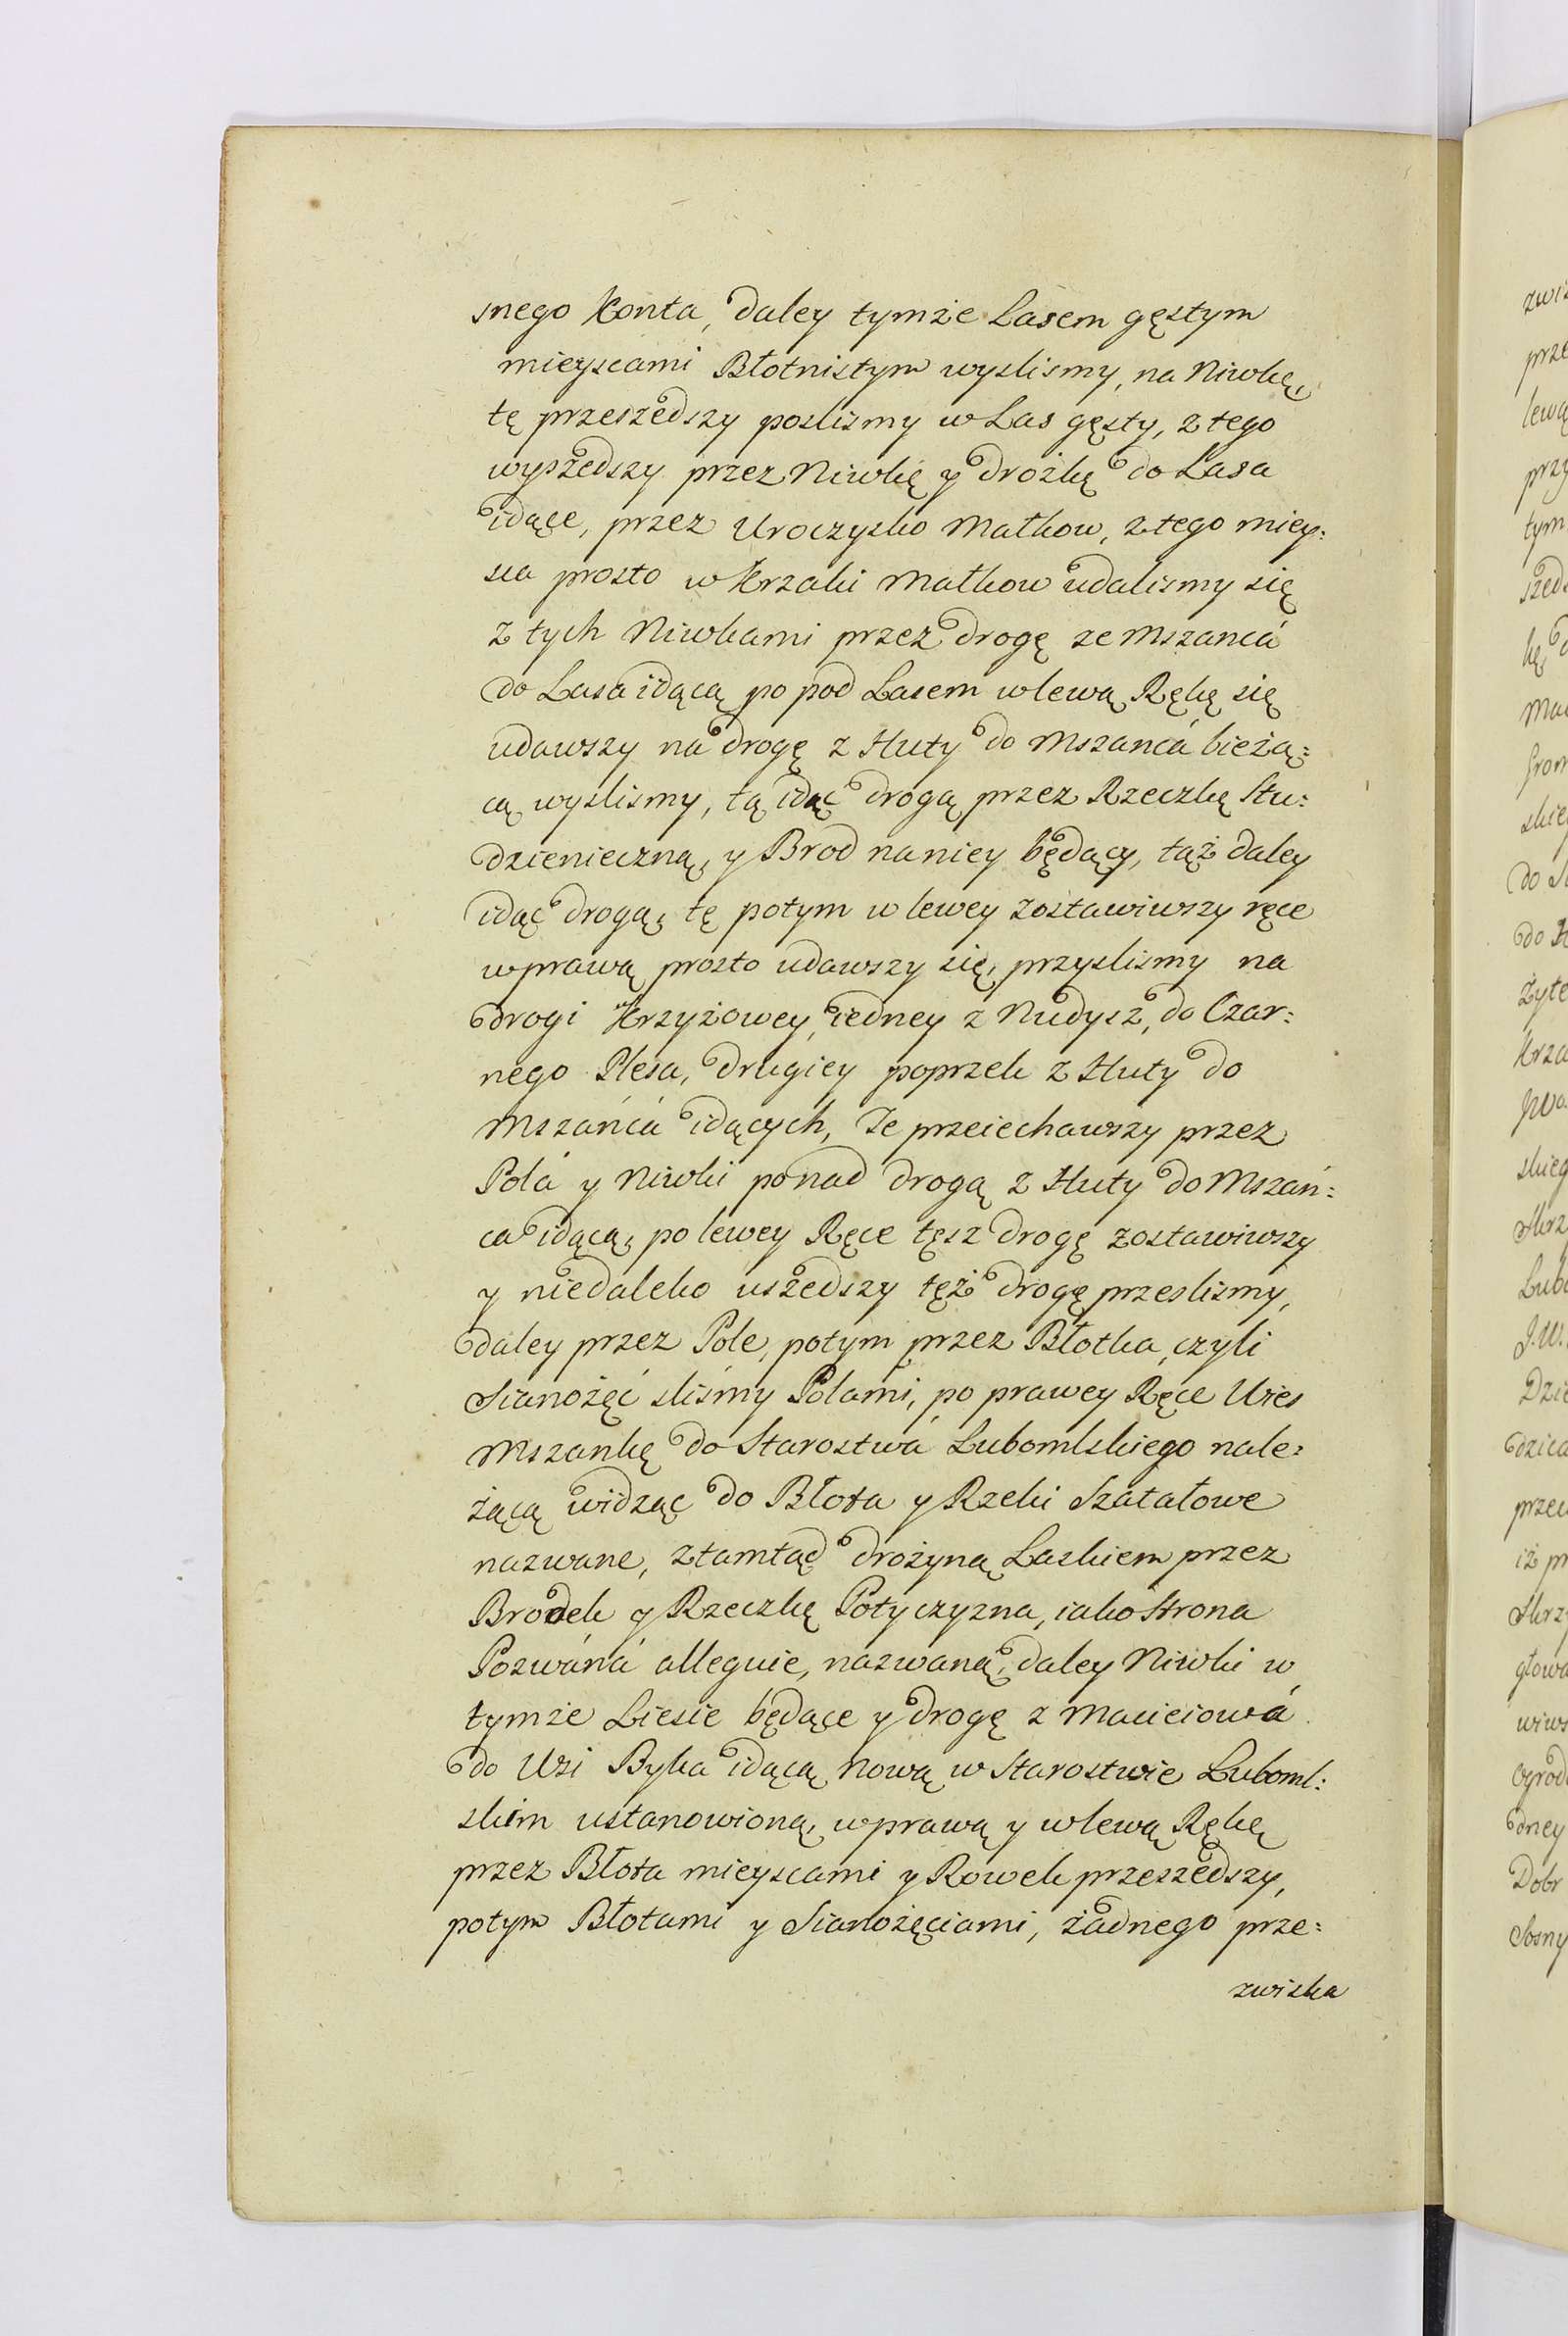 snego Konta, daley tymże Lasem gęstym
mieyscami Błotnistym wyslismy, na Niwkę,
tę przeszedszy poslismy w Las gęsty, z tego
wyszedszy przez Niwkę y drożkę do Lasa
idące, przez Uroczysko Matkow, z tego miey:
sca prosto w Krzaki Matkow udalismy się
z tych Niwkami przez drogę ze Mszanca
do Lasa idącą po pod Lasem w lewą Rękę się
udawszy na drogę z Huty do Mszanca bieżą:
cą wyslismy, tą idąc drogą przez Rzeczkę Stu:
dzienieczną, y Brod na niey będący, tąż daley
idąc drogą, tę potym w lewey zostawiwszy ręce
w prawą prosto udawszy się, przyslismy na
drogi Krzyżowey, iedney z Nudysz, do Czar:
nego Plesa, drugiey poprzek z Huty do
Mszańca idących, Te przeiechawszy przez
Pola y Niwki ponad drogą z Huty do Mszań:
ca idącą, po lewey Ręce tęsz drogę zostawiwszy
y niedaleko uszedszy tęż drogę przeslismy,
daley przez Pole, potym przez Błotka, czyli
Sianożęć slismy Polami, po prawey Ręce Wies
Mszankę do Starostwa Lubomlskiego nale:
żącą widząc do Błota y Rzeki Szatałowe
nazwane, ztamtąd drożyną Laskiem przez
Brodek y Rzeczkę Potyczyzna, iako Strona
Pozwana alleguie, nazwaną, daley Niwki w
tymże Liesie będące y drogę z Macieiowa
do Wsi Byka idącą nową w Starostwie Luboml:
skim ustanowioną, w prawą y w lewą Rękę
przez Błota mieyscami y Rowek przeszedszy,
potym Błotami y Sianożęciami, żadnego prze:
zwiska